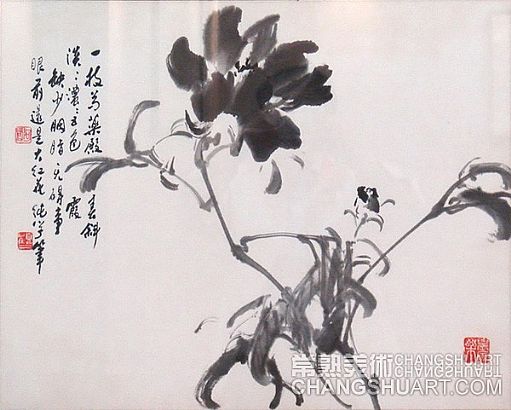 一枝芍藥殿春斜
淡淡濃濃五色霞
缺少胭脂无碍事
眼前還是大红花 純学筆
常熟美術 CHANGSHUART
CHANGSHUART.COM